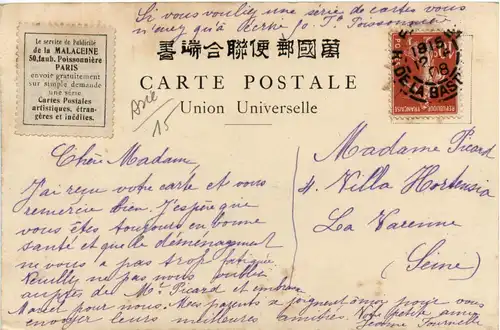 Si vous voulez une série de cartes vous
n'avez qu'à écrire 50 fg Poissonnière
Le service de Publicité
de la MALACEINE
50, faub. Poissonnière
PARIS
envoie gratuitement
sur simple demande
une série
Cartes Postales
artistiques, étran-
gères et inédites.
書端合聯便郵國萬
CARTE POSTALE
Union Universelle
R. DE LA BAST
15
Chère Madame,
J'ai reçu votre carte et vous
remercie bien. J'espère que
vous êtes toujours en bonne
santé et que le déménagement
ne vous a pas trop fatiguée
Veuillez ne pas nous oublier
auprès de Mr Picard et embrassez
Marcel pour nous. Mes parents se joignent à moi pour vous
envoyer leurs meilleures amitiés. Votre petite amie
Jeanne
Madame Picard
4. Villa Hortensia
La Varenne
(Seine)